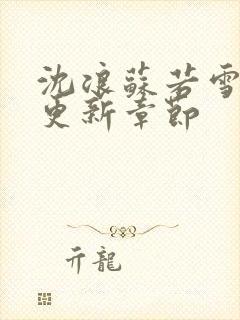 沈浪蘇若雪
更新章節
亓龍